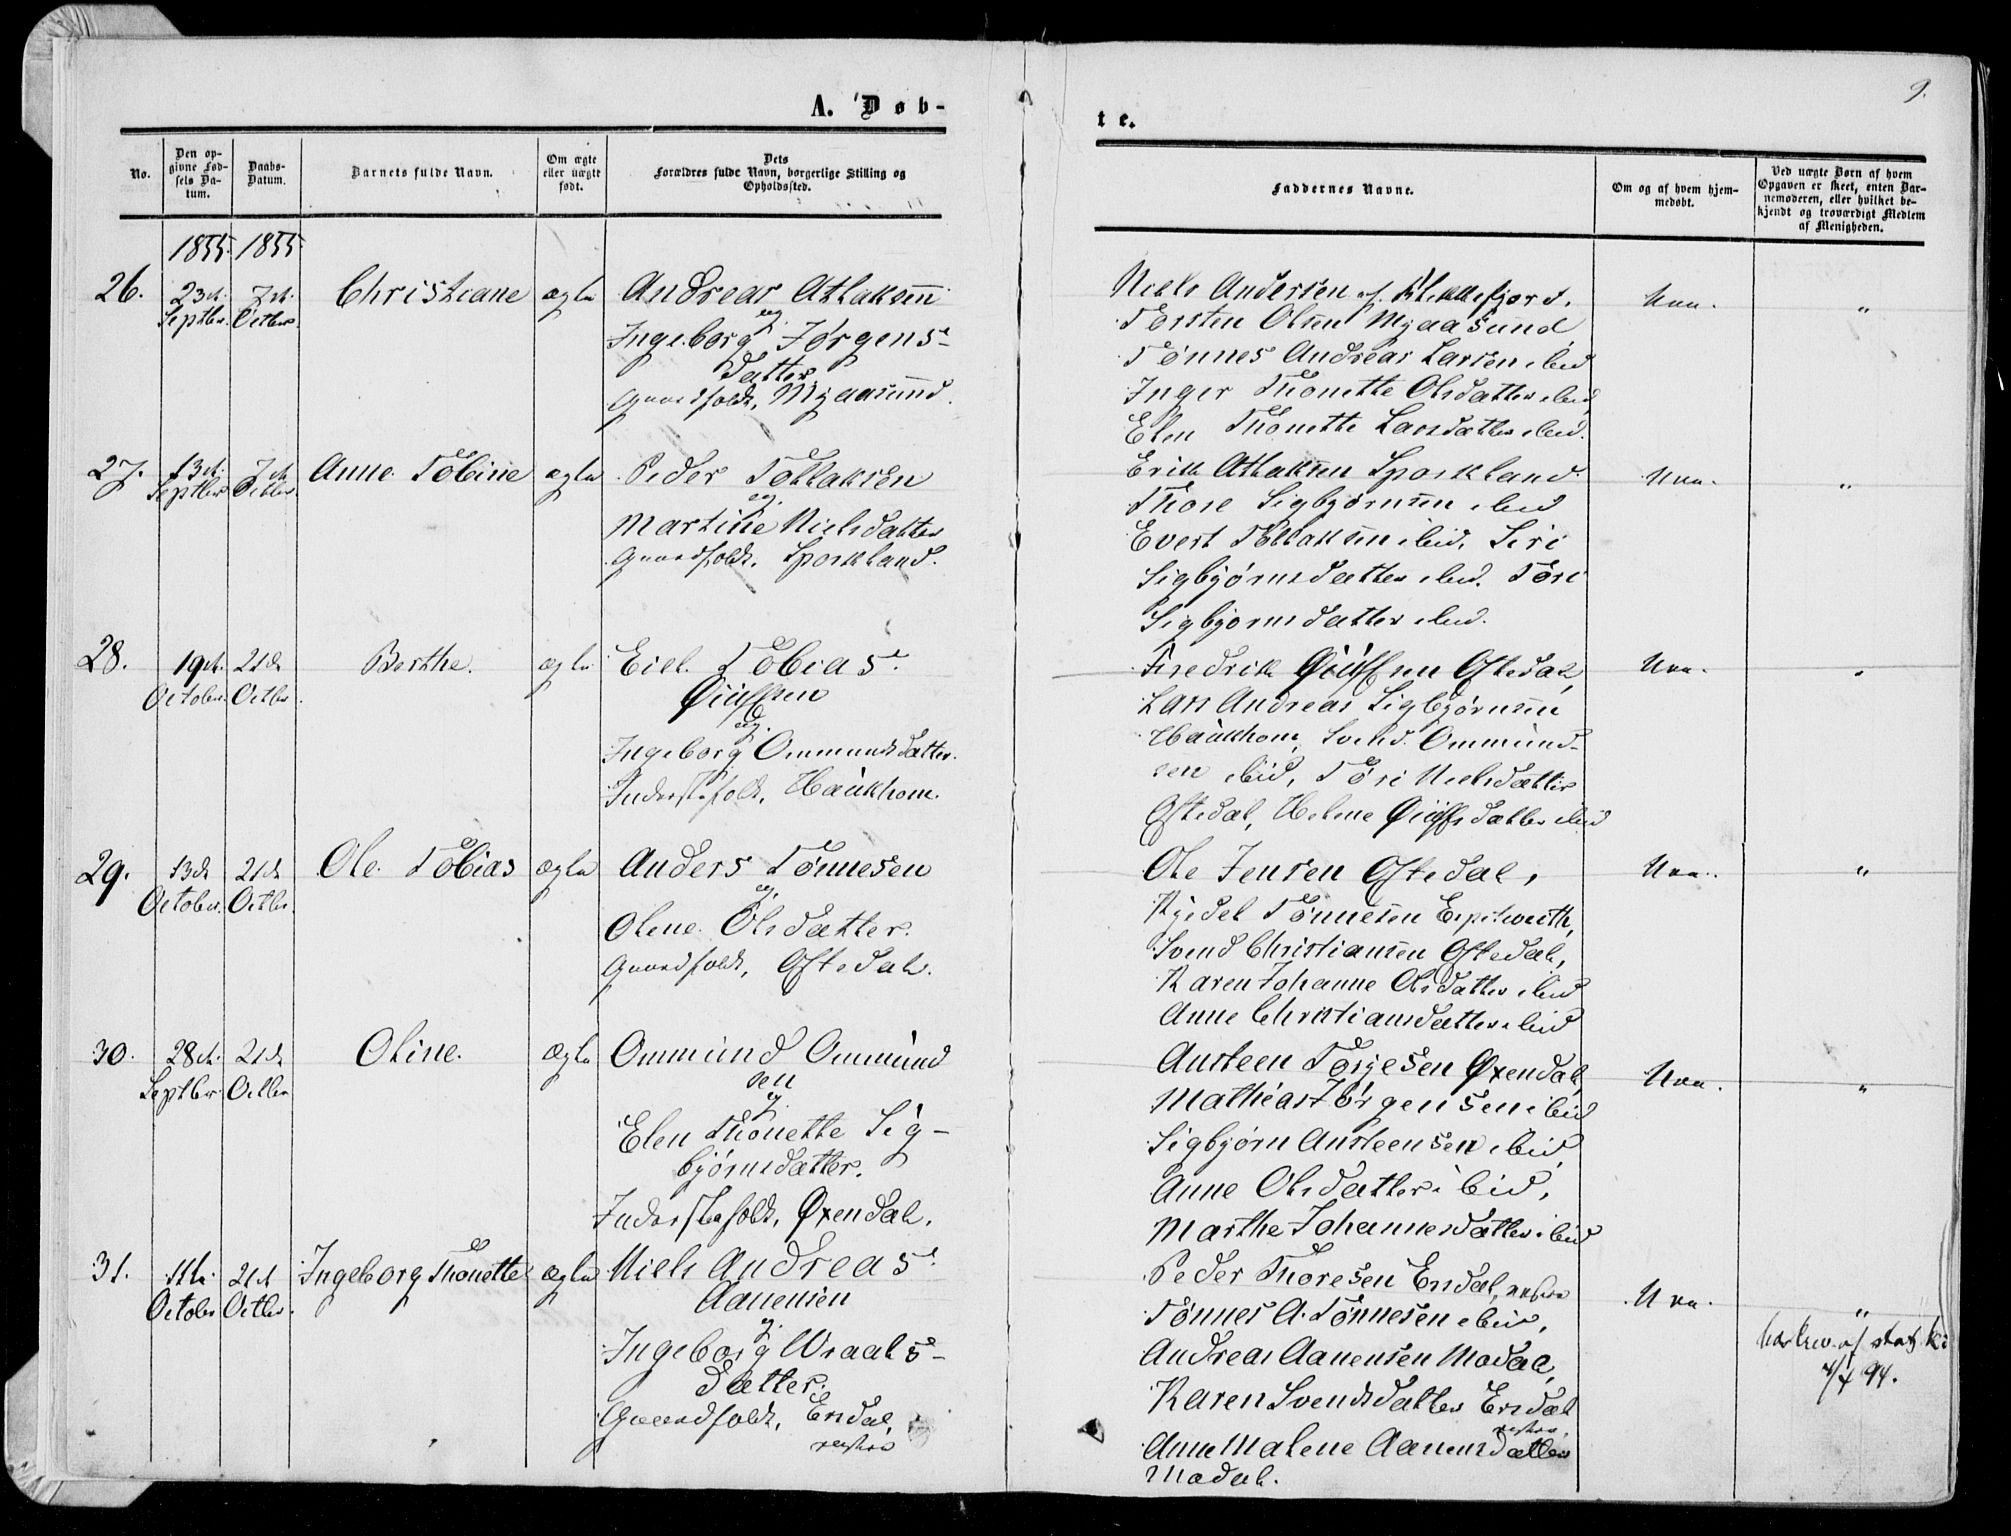 9.
A. Døb-
te.
No.
Den op-
givne Fød-
sels Da-
tum.
Daabs-
Datum.
Barnets fulde Navn.
Om ægte
eller uægte
født.
Dets
Forældres fulde Navn, borgerlige Stilling og
Opholdssted.
Faddernes Navne.
Om og af hvem hjem-
medøbt.
Ved uægte Børn af hvem
Opgaven er skeet, enten Bar-
nemoderen, eller hvilket be-
kjendt og troværdigt Medlem
af Menigheden.
1855. 1855
26.
23de
Septbr.
7de
Octbr.
Christiane
ægte
Andreas Atlaksen
og
Ingeborg Jørgens-
datter
Gaardfolk, Mjaasund.
Niels Andersen af Flekkefjord.
Torsten Olsen Mjaasund
Tønnes Andreas Larsen ibid
Inger Thonette Olsdatter ibid
Elen Thonette Larsdatter ibid.
"
27.
13de
Septbr
7de
Octbr
Anne Tobine
ægte
Peder Tollaksen
og
Martine Nielsdatter
Gaardfolk, Sporkland.
Erik Atlaksen Sporkland.
Thore Sigbjørnsen ibid
Evert Tollaksen ibid, Siri
Sigbjørnsdatter ibid. Tori
Sigbjørnsdatter ibid.
"
28.
19de
October
21de
Octbr
Berthe.
ægte
Eiel Tobias
og
Ingeborg Ommundsdatter.
Inderstefolk, Haukhom.
Fredrik Oftedal,
Lars Andreas Sigbjørnsen
Haukhom, Svend Ommund-
sen ibid, Tøri Nielsdatter
Oftedal, Helene ibid
"
29.
13de
October
21de
Octbr
Ole Tobias
ægte
Anders Tønnesen
og
Olene Olsdatter.
Gaardfolk, Oftedal.
Ole Jensen Oftedal,
Kjedel Tønnesen
Svend Christiansen Oftedal,
Karen Johanne Olsdatter ibid
Anne Christiansdatter ibid
"
30.
28de
Septbr
21de
Octbr
Oline.
ægte
Ommund Ommund
sen
og
Elen Thonette Sig-
bjørnsdatter.
Inderstefolk, Øxendal.
Austeen Torjesen Øxendal,
Mathias Jørgensen ibid
Sigbjørn Austeensen ibid,
Anne Olsdatter ibid,
Marthe Johannesdatter ibid
"
31.
11te
October
21de
Octbr.
Ingeborg Thonette
ægte
Niels Andreas
Aanensen
og
Ingeborg Vraals-
datter.
Gaardfolk, Ersdal,
vestre
Peder Thoresen Ersdal, vestre
Tønnes A. Tønnesen ibid,
Andreas Aanensen Modal,
Karen Svendsdatter Ersdal
vestre,
Anne Malene Aanensdatter
Modal.
"